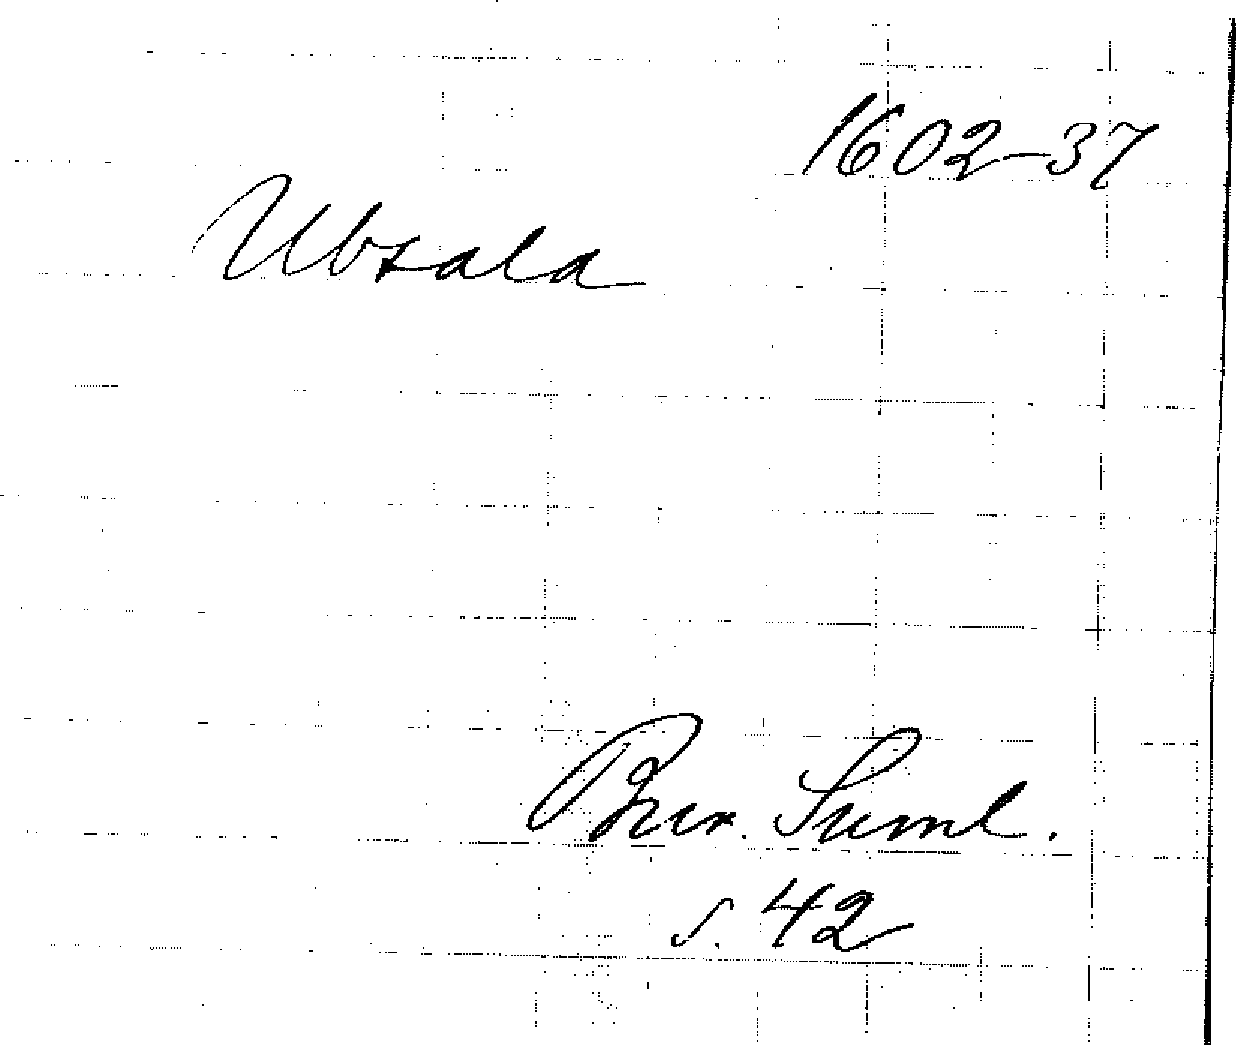 1602-37
Ubsala
Bur. Suml.
s. 42